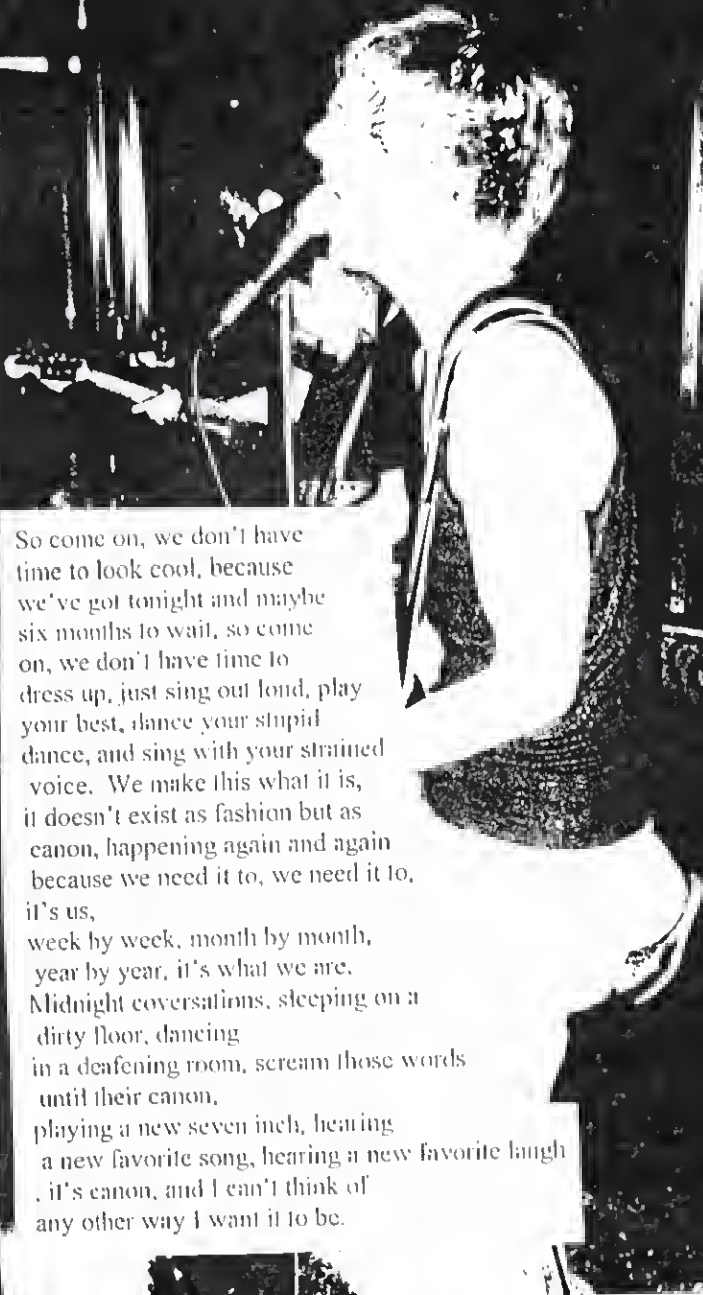 So come on, we don't have
time to look cool, because
we've got tonight and maybe
six months to wait, so come
on, we don't have time to
dress up, just sing out loud, play
your best, dance your stupid
dance, and sing with your strained
voice. We make this what it is,
it doesn't exist as fashion but as
canon, happening again and again
because we need it to, we need it to,
it's us,
week by week, month by month,
year by year, it's what we are.
Midnight coversations, sleeping on a
dirty floor, dancing
in a deafening room, scream those words
until their canon,
playing a new seven inch, hearing
a new favorite song, hearing a new favorite laugh
, it's canon, and I can't think of
any other way I want it to be.